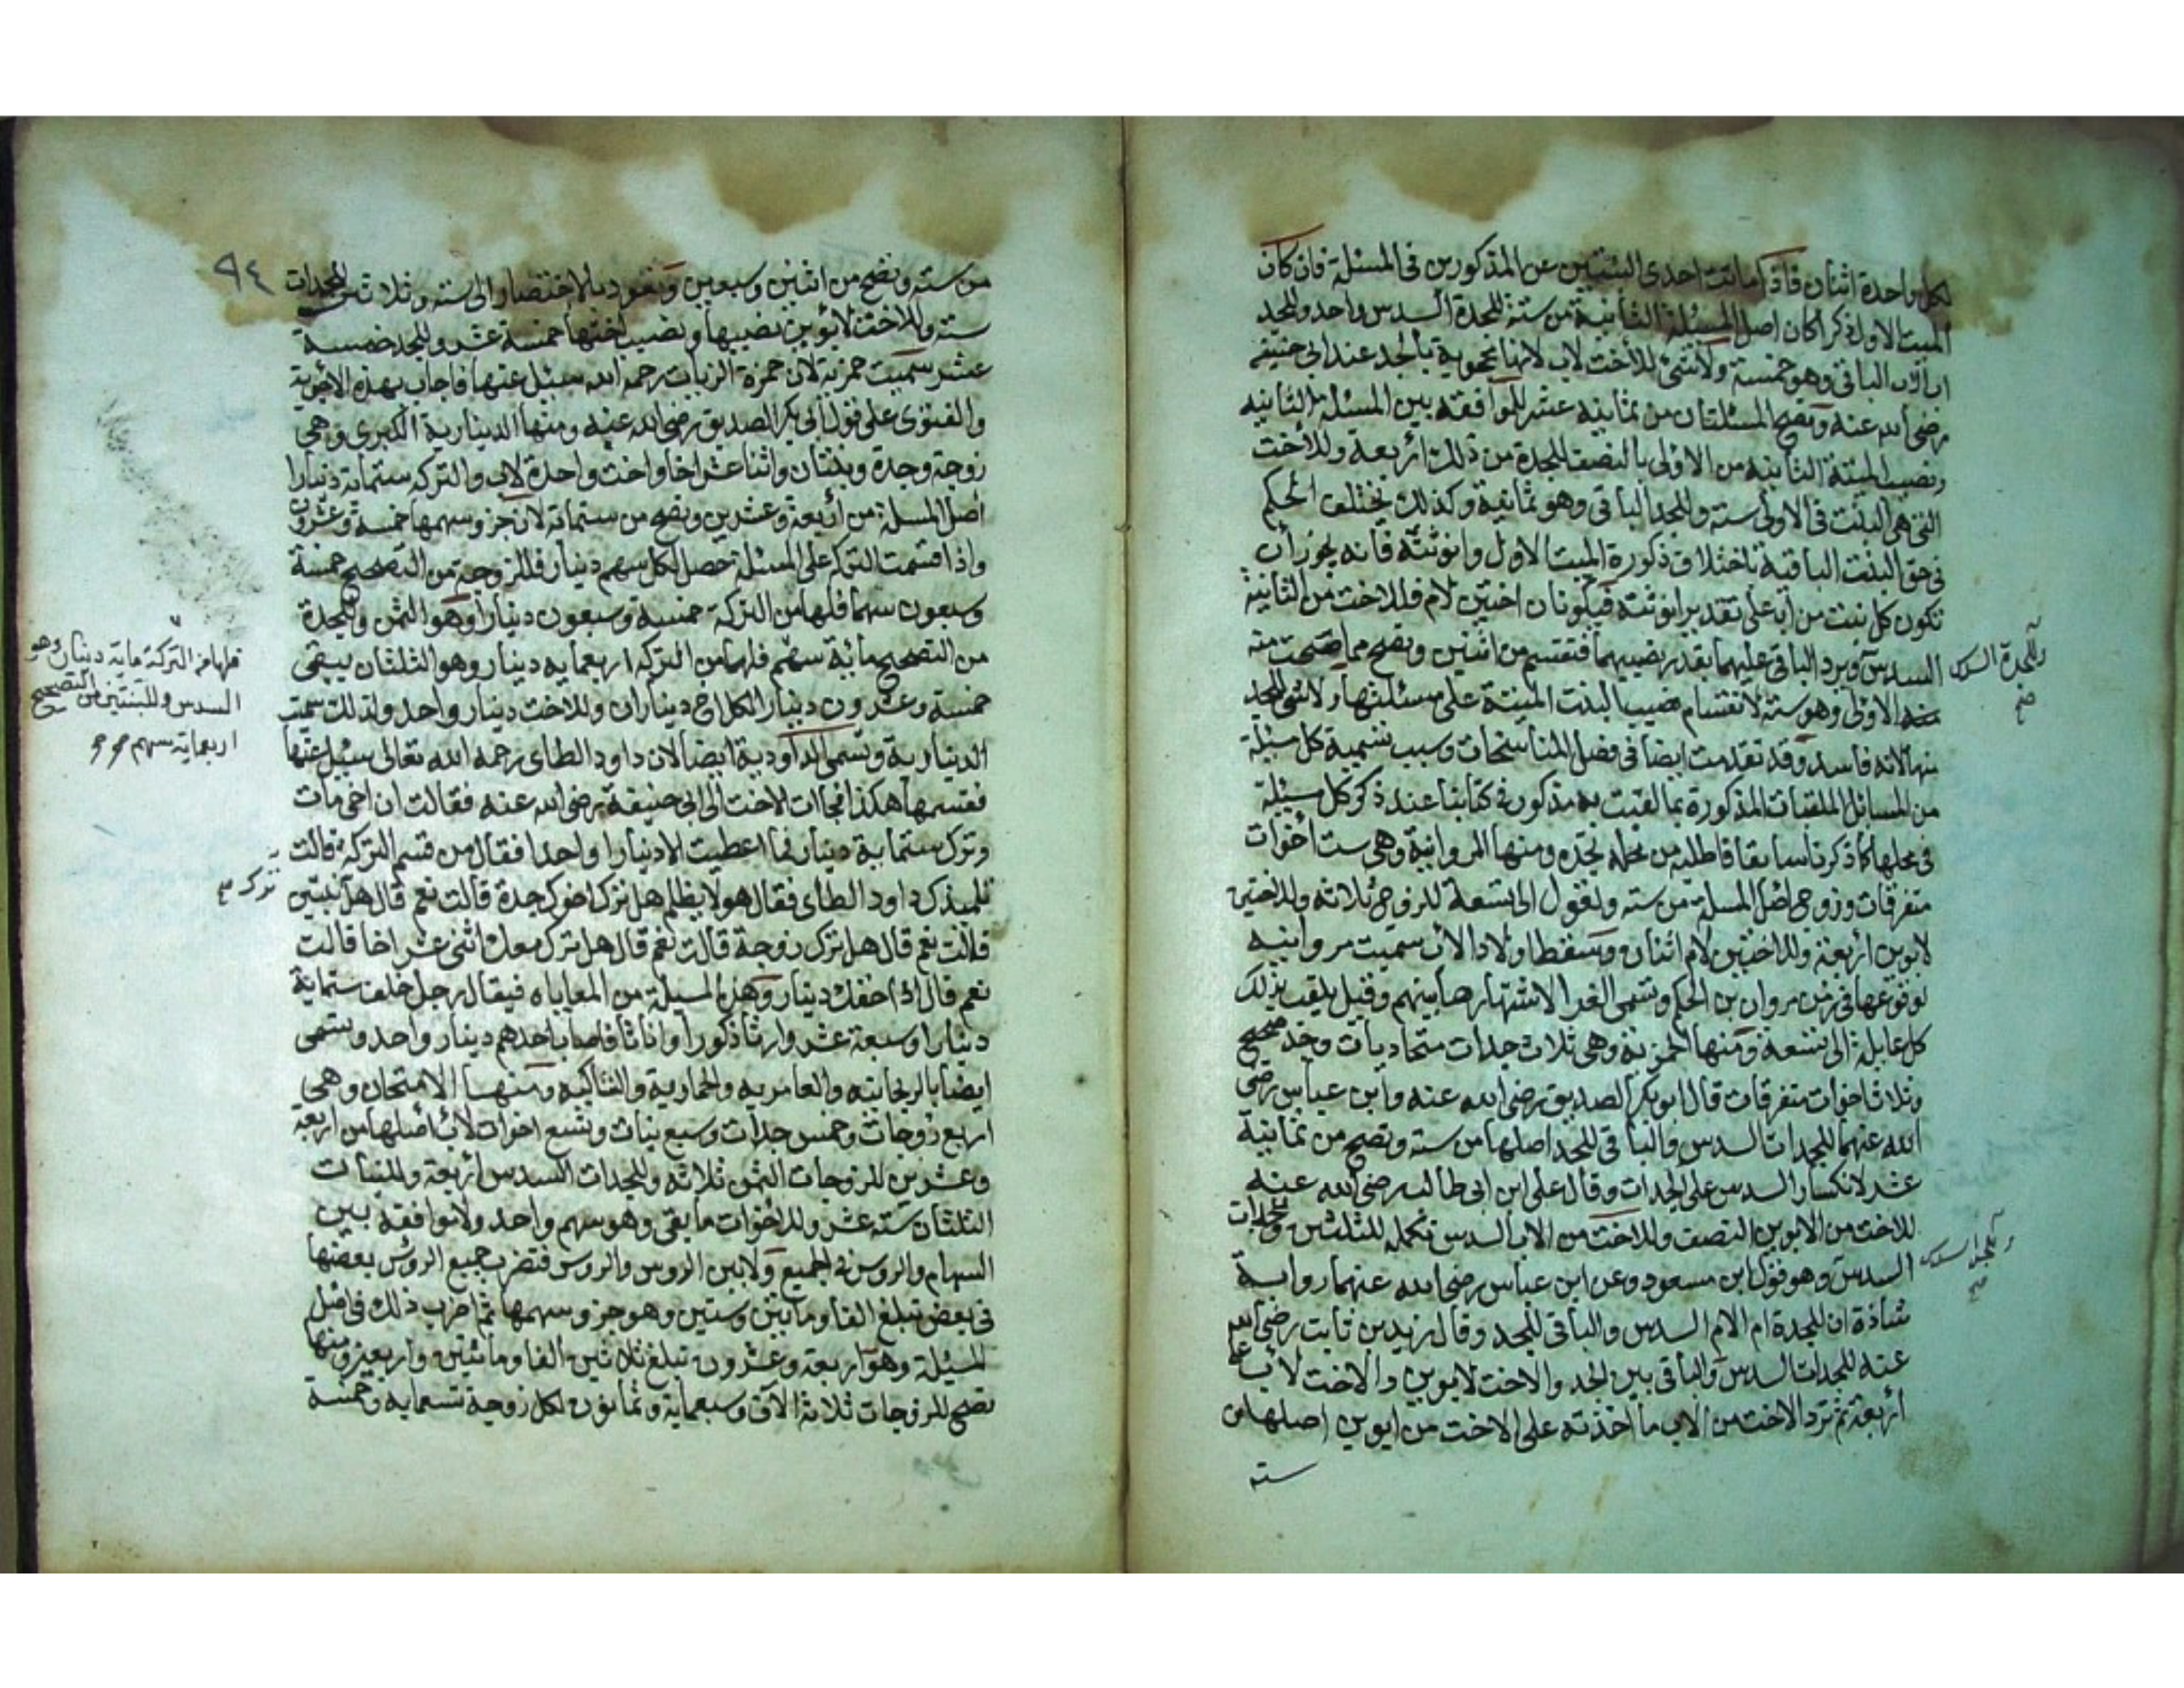 لكل واحدة اثنان فاذا ماتت احدى البنتين عن المذكورين فى المسئلة فان كان
الميت الاول ذكرا كان اصل المسئلة الثانية من ستة للجدة السدس واحد وللجد
اب الاب الباقى وهو خمسة ولا شئ للأخت لاب لانها محجوبة بالجد عند ابى حنيفه
رضى الله عنه وتصح المسئلتان من ثمانيه عشر للموافقه بين المسئلة الثانيه
ونصيب الميتة الثانيه من الاولى بالنصف للجدة من ذلك اربعة وللأخت
التى هى البنت فى الاولى سته وللجد الباقى وهو ثمانية وكذلك يختلف الحكم
فى حق البنت الباقية باختلاف ذكورة الميت الاول وانوثته فانه يجوز أن
تكون كل بنت من اب على تقدير انوثته فيكونان اختين لام فللاخت من الثانية
السدس ويرد الباقى عليهما بقدر نصيبهما فتقسم من اثنين وتصح مما صحت منه
وللجدة السدس صح
الاولى وهو ستة لانقسام نصيب البنت الميتة على مسئلتها ولا شئ للجد
منها لانه فاسد وقد تقدمت ايضا فى فصل المناسخات وسبب تسمية كل مسئلة
من المسائل الملقبات المذكورة بما لقبت به مذكور فى كتابنا عند ذكر كل مسئلة
فى محلها كما ذكرناه سابقا فاطلبه من محله تجده ومنها المروانية وهى ست أخوات
متفرقات وزوج اصل المسلة من سته وتعول الى تسعة للزوج ثلاثة وللاختين
لابوين أربعة وللاختين لام اثنان وتسقط اولاد الاب سميت مروانيه
لوقوعها فى زمن مروان بن الحكم وتسمى الغرا لاشتهارها بينهم وقيل يلقب بذلك
كل عايلة الى تسعة ومنها الحمزية وهى ثلاث جدات متحاذيات وجد صحيح
وثلاث اخوات متفرقات قال ابو بكر الصديق رضى الله عنه وابن عباس رضى
الله عنهما للجدات السدس والباقى للجد اصلها من سته وتصح من ثمانية
عشر لانكسار السدس على الجدات وقال على ابن ابى طالب رضى الله عنه
للاخت من الابوين النصف وللاخت من الاب السدس تكملة للثلثين وللجدات
وللجد السدس صح
السدس وهو قول ابن مسعود وعن ابن عباس رضى الله عنهما رواية
شاذة ان للجدة ام الام السدس والباقى للجد وقال زيد بن ثابت رضى الله
عنه للجدات السدس والباقى بين الجد والاخت لابوين والاخت لاب على
أربعة ثم ترد الاخت من الاب ما اخذته على الاخت من ابوين اصلها من
سته
٩٤
من ستة وتصح من اثنين وسبعين وتعود بالاختصار الى ستة وثلاثين للجدات
ستة وللاخت لابوين نصيبها ونصيب اختها خمسة عشر وللجد خمسة
عشر سميت حمزية لان حمزة الزيات رحمه الله سئل عنها فاجاب بهذه الاجوبة
والفتوى على قول ابى بكر الصديق رضى الله عنه ومنها الدينارية الكبرى وهى
زوجة وجدة وبنتان واثنا عشر اخا واخت واحدة لاب والتركه ستماية دينارا
اصل المسلة من أربعة وعشرين وتصح من ستماية لان جزو سهمها خمسة وعشرون
واذا قسمت التركه على المسئلة حصل لكل سهم دينار فللزوجة من التصحيح خمسة
وسبعون سهما فلها من التركة خمسة وسبعون دينارا وهو الثمن وللجدة
من التصحيح مائة سهم فلهما من التركه اربعمايه دينار وهو الثلثان يبقى
فلها من التركة ماية دينار وهو
السدس وللبنتين من التصحيح
اربعماية سهم
خمسة وعشرون دينارا لكل اخ ديناران وللاخت دينار واحد ولذلك سميت
الدينارية وتسمى الداودية ايضا لان داود الطاى رحمه الله تعالى سئل عنها
فقسمها هكذا فجاات الاخت الى ابى حنيفة رضى الله عنه فقالت ان اخى مات
وترك ستماية دينار فما اعطيت الا دينارا واحدا فقال من قسم التركة قالت
تلميذك داود الطاى فقال هو لا يظلم هل ترك اخوك جدة قالت نعم قال هل بنتين
ترك صح
قالت نعم قال هل ترك زوجة قالت نعم قال هل ترك معك اثنى عشر اخا قالت
نعم قال اذا حقك دينار وهذه المسئلة من المعاياه فيقال رجل خلف ستماية
دينارا وسبعة عشر وارثا ذكورا واناثا فاصاب احدهم دينار واحد وتسمى
ايضا بالركابيه والعامريه والحمارية والشاكيه ومنها الامتحان وهى
اربع زوجات وخمس جدات وسبع بنات وتسع اخوات لاب أصلها من اربعة
وعشرين للزوجات الثمن ثلاثة وللجدات السدس أربعة وللبنات
الثلثان ستة عشر وللاخوات ما بقى وهو سهم واحد ولا موافقه بين
السهام والروس فى الجميع ولا بين الروس والروس فتضرب جميع الروس بعضها
فى بعض تبلغ الفا ومايتين وستين وهو جزو سهمها ثم اضرب ذلك فى اصل
المسئلة وهو اربعة وعشرون تبلغ ثلاثين الفا ومائتين واربعين ومنها
تصح للزوجات ثلاثة الاف وسبعماية وثمانون لكل زوجة تسعمايه وخمسة